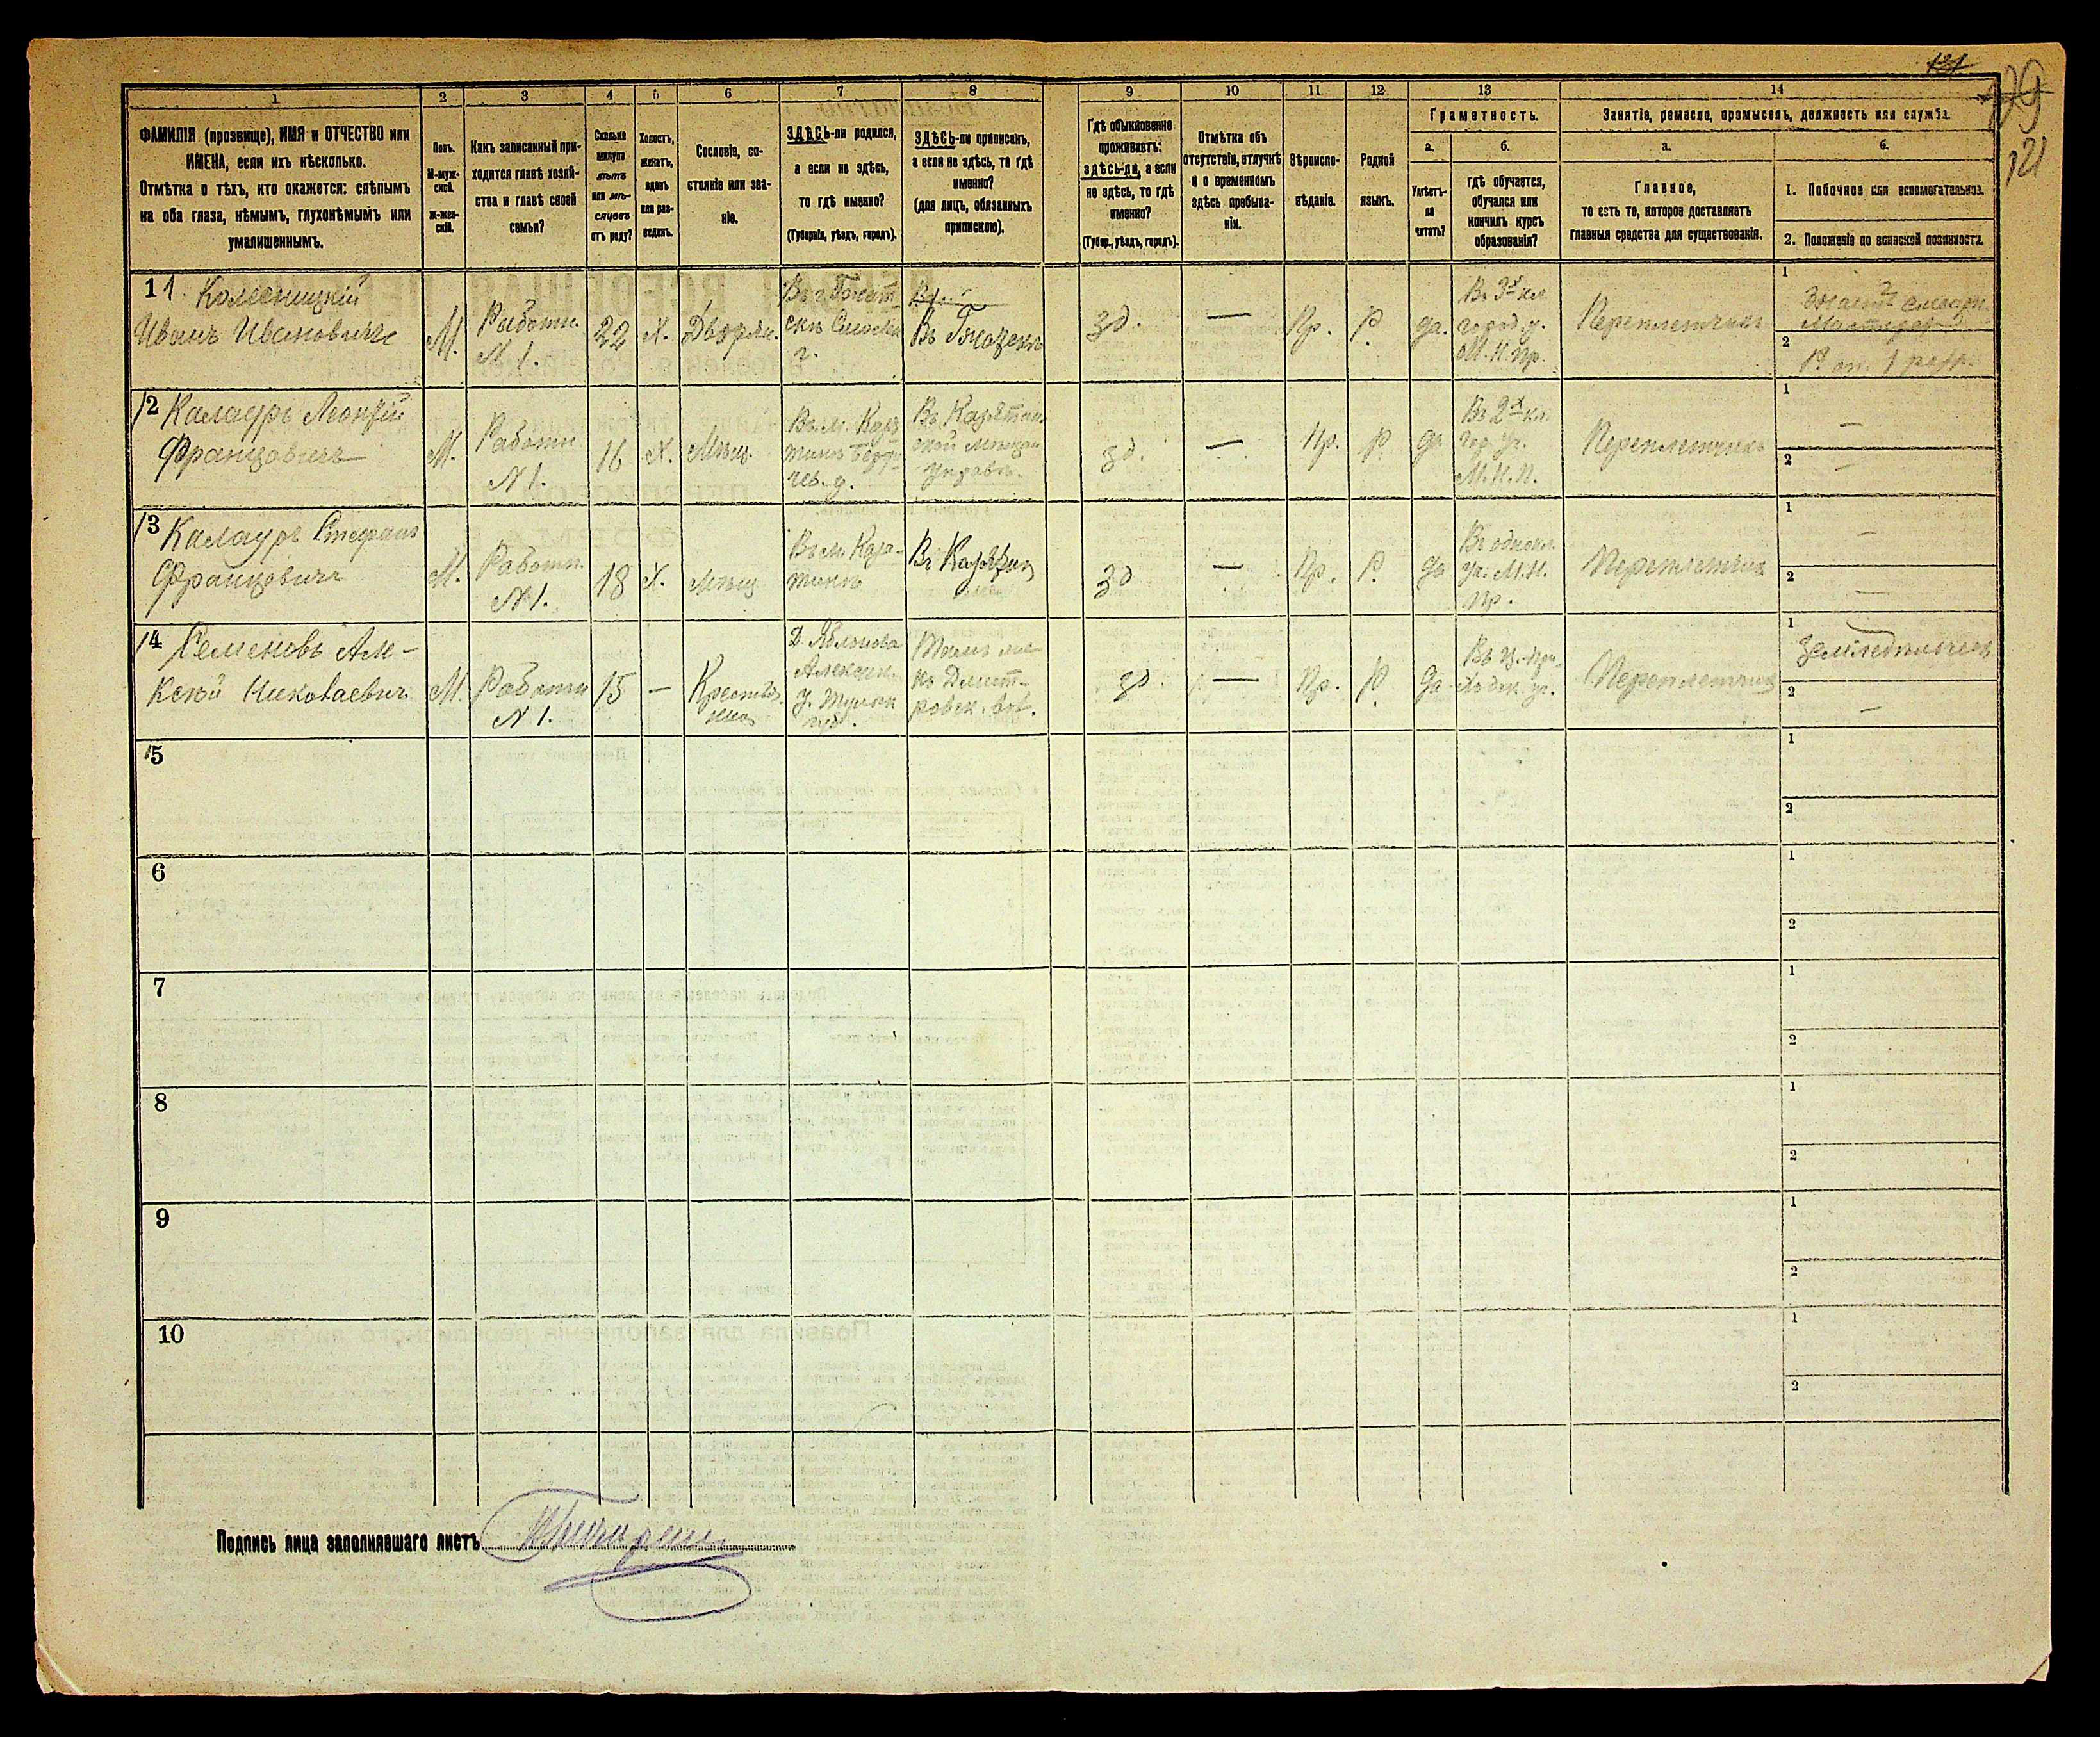 121
79
121
1 2 3 4 5 6 7 8 9 10 11 12 13 14
ФАМИЛІЯ (прозвище), ИМЯ и ОТЧЕСТВО или
ИМЕНА, если ихъ нѣсколько.
Отмѣтка о тѣхъ, кто окажется: слѣпымъ
на оба глаза, нѣмымъ, глухонѣмымъ или
умалишеннымъ.
Полъ.
М-муж-
ской.
Ж-жен-
скій.
Какъ записанный при-
ходится главѣ хозяй-
ства и главѣ своей
семьи?
Сколько
минуло
лѣтъ
или мѣ-
сяцевъ
отъ роду?
Холостъ,
женатъ,
вдовъ
или раз-
веденъ.
Сословіе, со-
стояніе или зва-
ніе.
ЗДѢСЬ-ли родился,
а если не здѣсь,
то гдѣ именно?
(Губернія, уѣздъ, городъ).
ЗДѢСЬ-ли приписанъ,
а если не здѣсь, то гдѣ
именно?
(для лицъ, обязанныхъ
припискою).
Гдѣ обыкновенно
проживаетъ:
здѣсь-ли, а если
не здѣсь, то гдѣ
именно?
(Губер., уѣздъ, городъ).
Отмѣтка объ
отсутствіи, отлучкѣ
и о временномъ
здѣсь пребыва-
ніи.
Вѣроиспо-
вѣданіе.
Родной
языкъ.
Грамотность.
а.
Умѣетъ-
ли
читать?
б.
гдѣ обучается,
обучался или
кончилъ курсъ
образованія?
Занятіе, ремесло, промыселъ, должность или служба.
а.
Главное,
то есть то, которое доставляетъ
главныя средства для существованія.
б.
1. Побочное или вспомогательное.
2. Положеніе по воинской повинности.
11. Колесницкій
Иванъ Ивановичъ
М.
Работн.
№ 1.
22
Х.
Дворян.
Въ г. Гжат-
скѣ Смолен.
г.
Въ Гжатскѣ
зд.
—
Пр.
Р.
да.
Въ 3х кл.
город. у.
М. Н. Пр.
Переплетчикъ
1
2
12 Калауръ Леонтій
Францовичъ
М.
Работн
№ 1.
16
Х.
Мѣщ.
Въ м. Каза
тинѣ Берди-
чев. у.
Въ Казатин-
ской мѣщан
управѣ.
зд.
—
Пр.
Р.
да
Въ 2х кл.
гор. уч.
М. Н. П.
Переплетчикъ
1 —
2 —
13 Калауръ Стефанъ
Францовичъ
М.
Работн.
№ 1.
18
Х.
Мѣщ
Въ м. Каза-
тинѣ
Въ Казатин
зд
—
Пр.
Р.
да
Въ однокл.
уч. М. Н.
Пр.
Переплетчикъ
1 —
2 —
14 Семеновъ Але-
ксѣй Николаевичъ
М.
Работн
№ 1.
15
—
Крестья-
нинъ
Д. Яблонова
Алексин.
у. Тульск
губ.
Тамъ же
въ Дмит-
ровск. вол.
зд.
—
Пр.
Р.
да
Въ ц.-при-
ходск. уч.
Переплетчикъ
1 Земледѣлецъ
2 —
15 1
2
6 1
2
7 1
2
8 1
2
9 1
2
10 1
2
Подпись лица заполнявшаго листъ